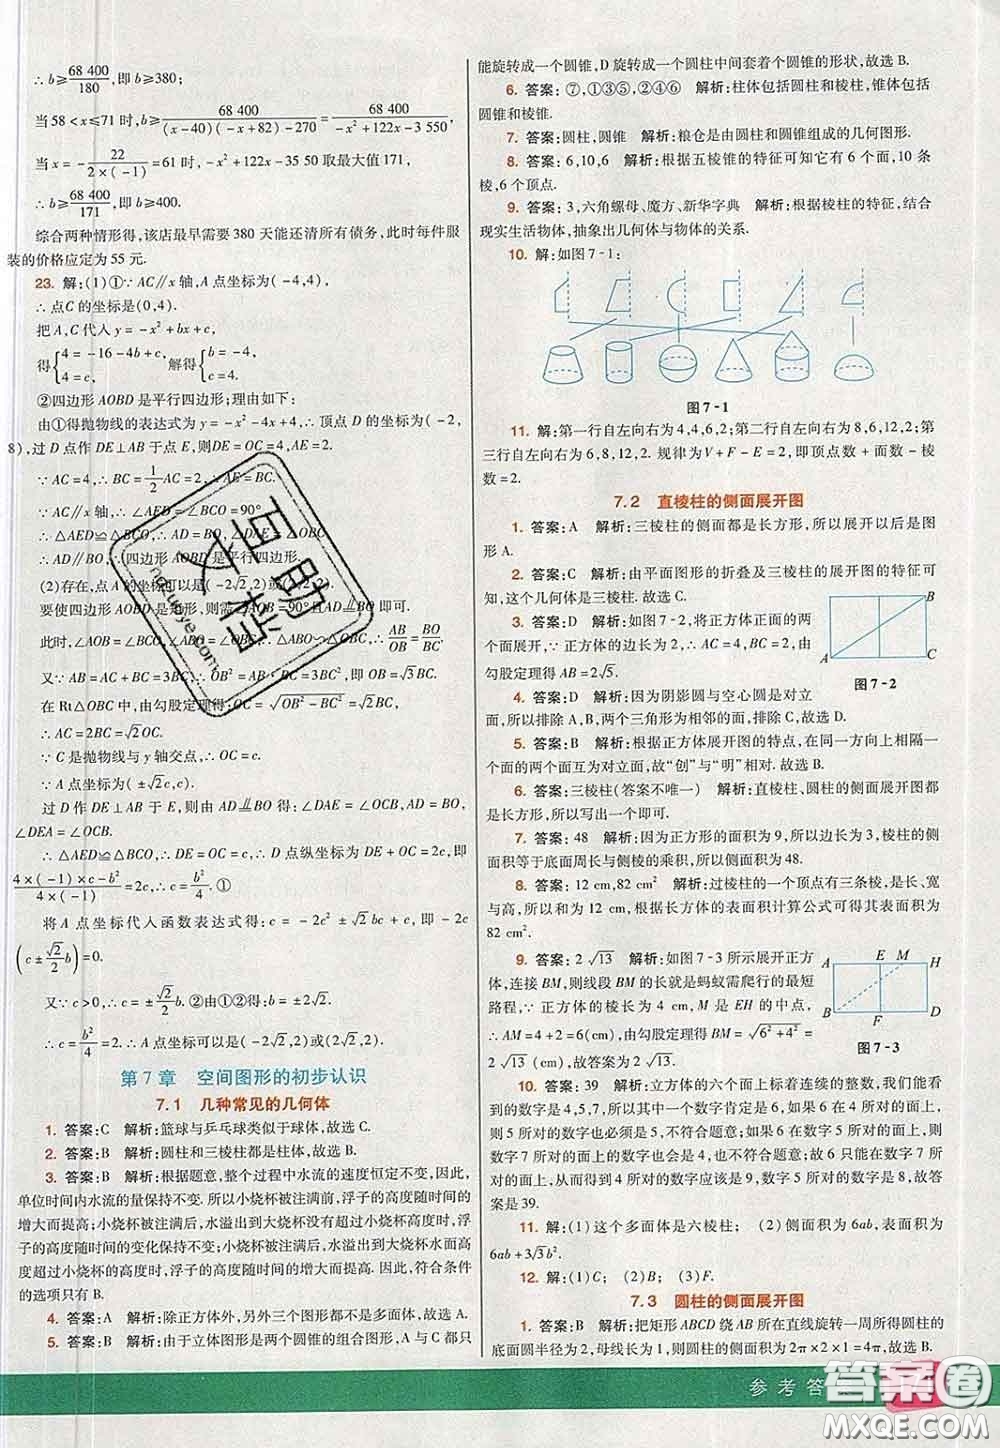 ∴ b≥68 400/180,即 b≥380;
当 58<x≤71 时,b≥68 400/((x-40)(-x+82)-270)=68 400/(-x²+122x-3 550),
当 x=-22/(2×(-1))=61 时,-x²+122x-35 50 取最大值 171,
∴ b≥68 400/171,即 b≥400.
综合两种情形得,该店最早需要 380 天能还清所有债务,此时每件服
装的价格应定为 55 元.
23. 解:(1)①∵ AC∥x 轴,A 点坐标为(-4,4),
∴ 点C 的坐标是(0,4).
把 A,C代入 y=-x²+bx+c,
得{4=-16-4b+c, 4=c, 解得{b=-4, c=4.
②四边形 AOBD 是平行四边形;理由如下:
由①得抛物线的表达式为 y=-x²-4x+4,∴ 顶点 D 的坐标为(-2,
8),过 D 点作 DE⊥AB 于点 E,则DE=OC=4,AE=2.
∵ AC=4,∴ BC=1/2 AC=2,∴ AE=BC.
∵ AC∥x 轴,∴ ∠AED=∠BCO=90°,
∴ △AED≌△BCO,∴ AD=BO,∠DAE=∠OBC,
∴ AD∥BO,∴ 四边形 AOBD 是平行四边形.
(2)存在,点 A 的坐标可以是(-2√2,2)或(2√2,2).
要使四边形 AOBD 是矩形,则需∠AOB=90°且AD∥BO 即可.
此时,∠AOB=∠BCO=90°,∠ABO=∠OBC,∴ △ABO∽△OBC,∴ AB/OB=BO/BC.
又∵ AB=AC+BC=3BC,∴ OB²=AB·BC=3BC²,即 OB=√3BC.
在 Rt△OBC 中,由勾股定理得 OC=√(OB²-BC²)=√2BC,
∴ AC=2BC=√2OC.
∵ C 是抛物线与 y 轴交点,∴ OC=c.
∴ A 点坐标为(±√2c,c).
过 D 作 DE⊥AB 于 E,则由 AD∥BO 得:∠DAE=∠OCB,AD=OB,
∠DEA=∠OCB.
∴ △AED≌△BCO,∴ DE=OC=c,∴ D 点纵坐标为 DE+OC=2c,即
(4×(-1)×c-b²)/(4×(-1))=2c,∴ c=b²/4. ①
将 A 点坐标代入函数表达式得:c=-2c²±√2bc+c,即 -2c
(c±√2/2 b)=0.
又∵ c>0,∴ c=±√2/2 b. ②,∴ b=±2√2.
∴ c=b²/4=2.∴ A 点坐标可以是(-2√2,2)或(2√2,2).
第 7 章 空间图形的初步认识
7.1 几种常见的几何体
1. 答案:C 解析:篮球与乒乓球类似于球体,故选 C.
2. 答案:B 解析:圆柱和三棱柱都是柱体,故选 B.
3. 答案:B 解析:根据题意,整个过程中水流的速度恒定不变.因此,
单位时间内水流的量保持不变.所以小烧杯被注满前,浮子的高度随时间的
增大而提高;小烧杯被注满时,水溢出到大烧杯没有与小烧杯相平时,浮
子的高度随时间的变化保持不变;小烧杯被注满时,水溢出到大烧杯水面
高度超过小烧杯的高度时,浮子的高度随时间的增大而提高,符合条件
的选项只有 B.
4. 答案:A 解析:除正方体外,另外三个图形都不是多面体,故选 A.
5. 答案:B 解析:由于立体图形是两个圆锥的组合图形,A 与 C 都只
能旋转成一个圆锥,D 旋转成一个圆柱中间套着个圆锥的形状,故选 B.
6. 答案:⑦,①③⑤,②④⑥ 解析:柱体包括圆柱和棱柱,锥体包括
圆锥和棱锥.
7. 答案:圆柱,圆锥 解析:粮仓是由圆柱和圆锥组成的几何图形.
8. 答案:6,10,6 解析:根据五棱锥的特征可知它有 6 个面,10 条
棱,6 个顶点.
9. 答案:3,六角螺母、魔方、新华字典 解析:根据棱柱的特征,结合
现实生活物体,抽象出几何体与物体的关系.
10. 解:如图 7-1:
图 7-1
11. 解:第一行自左向右为 4,4,6,2;第二行自左向右为 8,6,12,2;第
三行自左向右为 6,8,12,2. 规律为 V+F-E=2,即顶点数+面数-棱
数=2.
7.2 直棱柱的侧面展开图
1. 答案:A 解析:三棱柱的侧面都是长方形,所以展开以后是图
形 A.
2. 答案:C 解析:由平面图形的折叠及三棱柱的展开图的特征可
知,这个几何体是三棱柱.故选 C.
3. 答案:D 解析:如图 7-2,将正方体正面的
两个面展开,∵ 正方体的棱长为 2,∴ AC=4,BC=2,由
勾股定理得 AB=2√5.
A B C
图 7-2
4. 答案:D 解析:因为阴影圆与空心圆是对立
面,所以排除 A,B,两个三角形为相邻的面,排除 C,故选 D.
5. 答案:B 解析:根据正方体展开图的特点,在同一方向上相隔一
个面的两个面互为对立面,故“创”与“明”相对.故选 B.
6. 答案:三棱柱(答案不唯一) 解析:直棱柱、圆柱的侧面展开图都
是长方形,所以写出一个即可.
7. 答案:48 解析:因为正方形的面积为 9,所以边长为 3,棱柱的侧
面积等于底面周长与侧棱的乘积,所以侧面积为 48.
8. 答案:12 cm,82 cm² 解析:过棱柱的一个顶点有三条棱,长、宽
与高,所以和为 12 cm,根据长方体的表面积计算公式可得其表面积为
82 cm².
9. 答案:2√13 解析:如图 7-3 所示展开正方
体,连接 BM,则线段 BM 的长就是蚂蚁需爬行的最短
路程,∵ 正方体的棱长为 4 cm,M 是 EH 的中点,
∴ AM=4+2=6(cm),由勾股定理得 BM=√(6²+4²)=
2√13(cm),故答案为 2√13.
A E M H B F D
图 7-3
10. 答案:39 解析:立方体的六个面上标着连续的整数,我们能
看到的数字是 4,5,7,所以其中一定有 6,如果 6 在数字 4 所对的面上,
则 5 所对的数字也必须是 5,不符合题意;如果 6 在数字 5 所对的面上,
则数字 7 所对的数字也会是 4,不符合题意;故 6 只能在数字 7 所
对的面上,则数字 4 所对的数字应该是 9,数字 5 所对的数字是 8,故答
案是 39.
11. 解:(1)这个多面体是六棱柱; (2)侧面积为 6ab,表面积为
6ab+3√3b².
12. 解:(1)C; (2)B; (3)F.
7.3 圆柱的侧面展开图
1. 答案:B 解析:把矩形 ABCD 绕 AB 所在直线旋转一周所得圆柱
的底面圆半径为 2,母线长为 1,故侧面积为 2π×2×1=4π,故选 B.
参 考 答
答案圈
MXQE.COM
互助文档